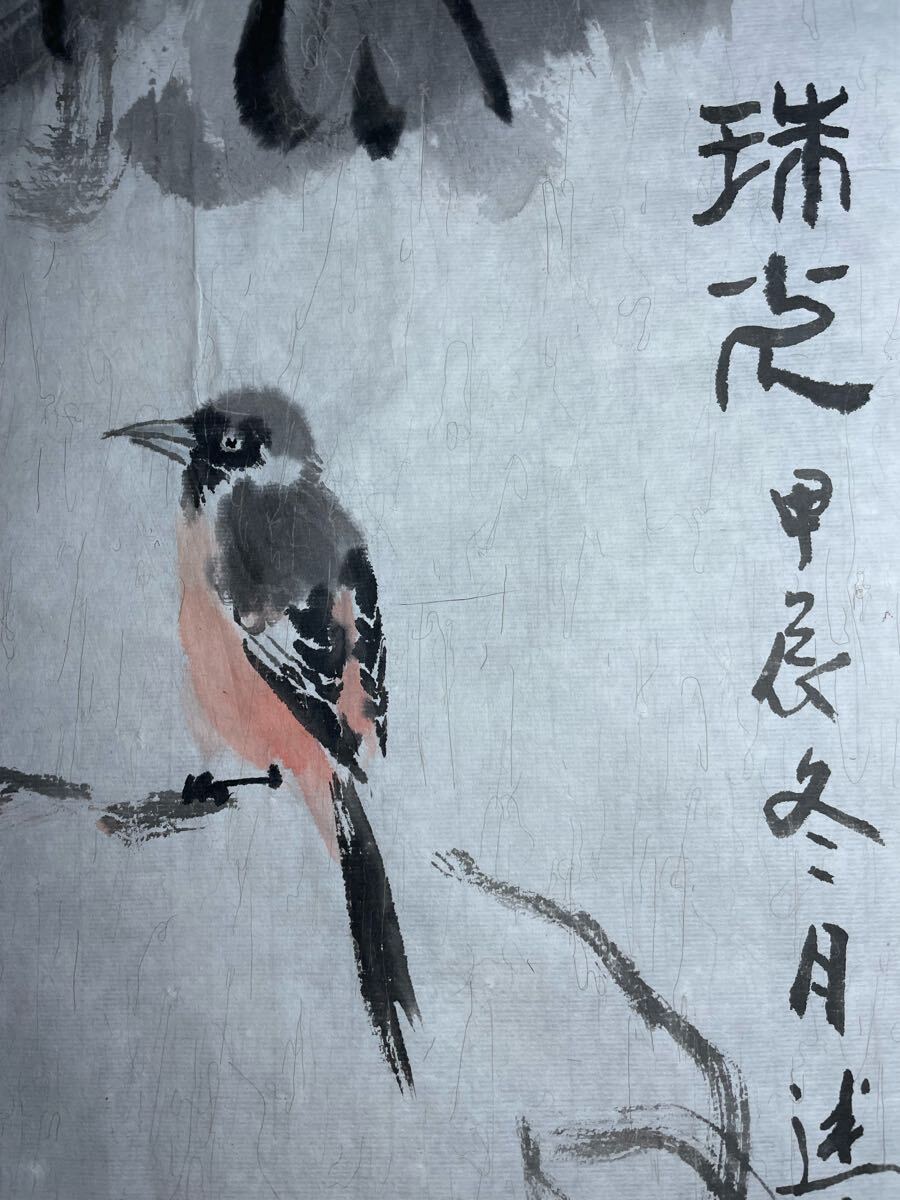 珠光甲辰冬月述